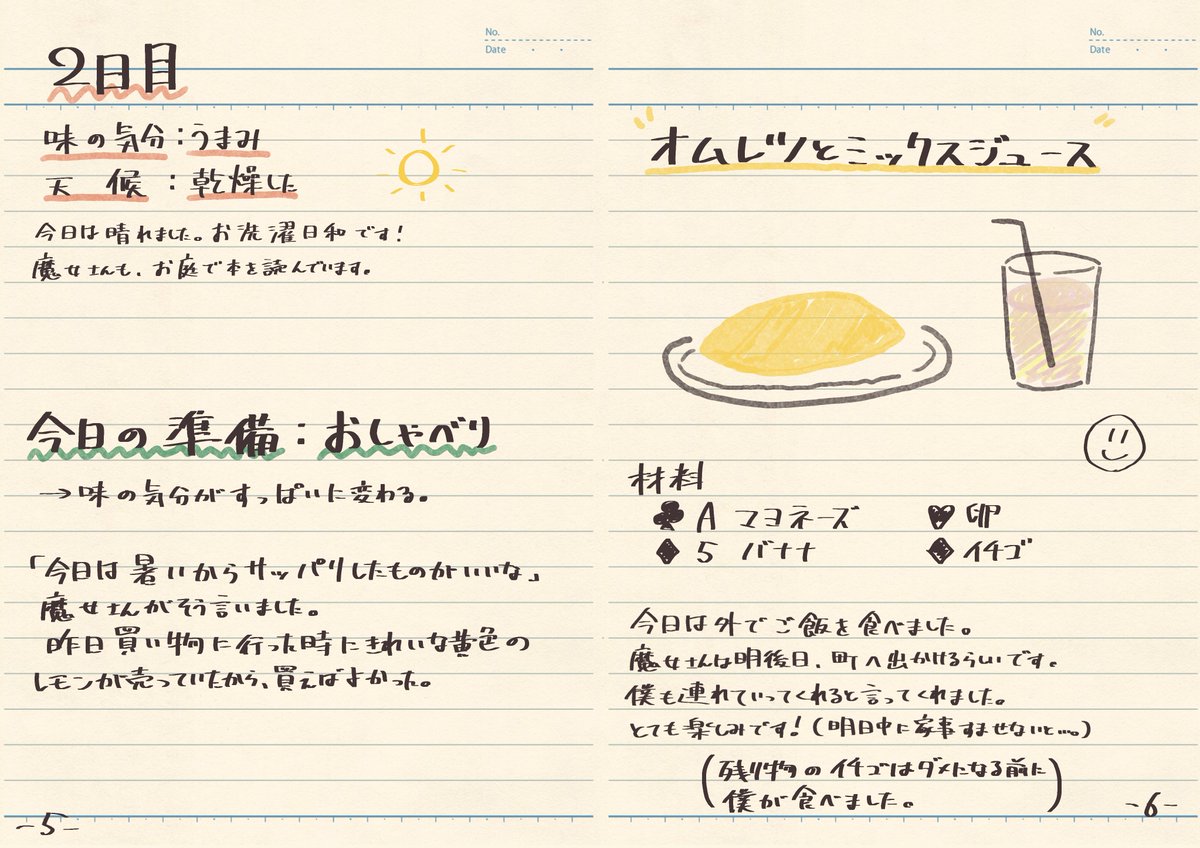 No.
Date ・ ・
2日目
味の気分：うまみ
天 候 ：乾燥した
今日は晴れました。お洗濯日和です！
魔女さんも、お庭で本を読んでいます。
今日の準備：おしゃべり
→味の気分がすっぱいに変わる。
「今日は暑いからサッパリしたものがいいな」
魔女さんがそう言いました。
昨日買い物に行った時にきれいな黄色の
レモンが売っていたから、買えばよかった。
-5-
No.
Date ・ ・
オムレツとミックスジュース
材料
♣A マヨネーズ ♥卵
♦5 バナナ ♦イチゴ
今日は外でご飯を食べました。
魔女さんは明後日、町へ出かけるらしいです。
僕も連れていってくれると言ってくれました。
とても楽しみです！（明日中に家事すませないと…。）
（残り物のイチゴはダメになる前に
僕が食べました。）
-6-